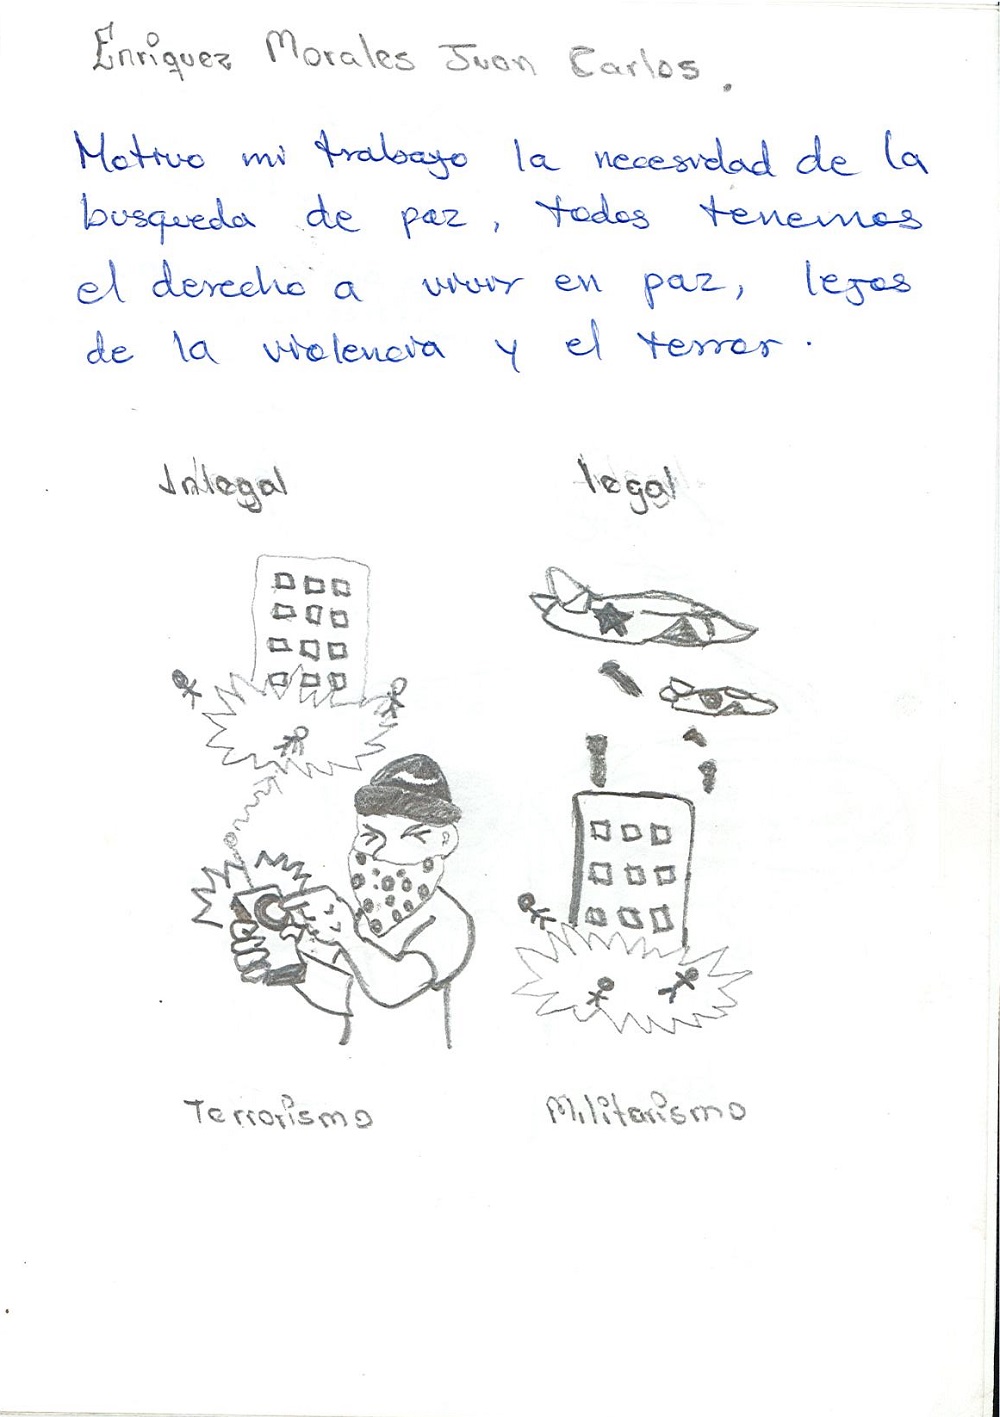 Enriquez Morales Juan Carlos.
Motivo mi trabajo la necesidad de la
busqueda de paz, todos tenemos
el derecho a vivir en paz, lejos
de la violencia y el terror.
Inlegal legal
Terrorismo Militarismo